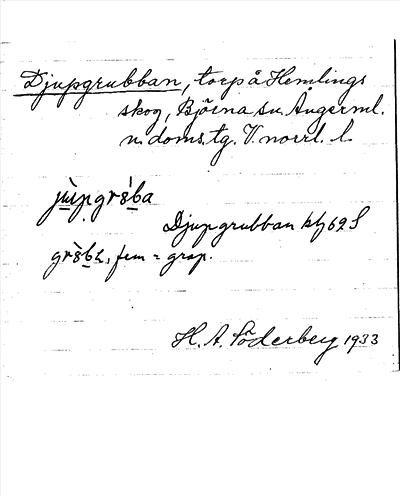 Djupgrubban, torp å Hemlings
skog, Björna sn. Ångerml.
n. doms.tg. V. norrl. l.
Djupgrubban kbl 62 S
fem = grop.
H. A. Söderberg 1933